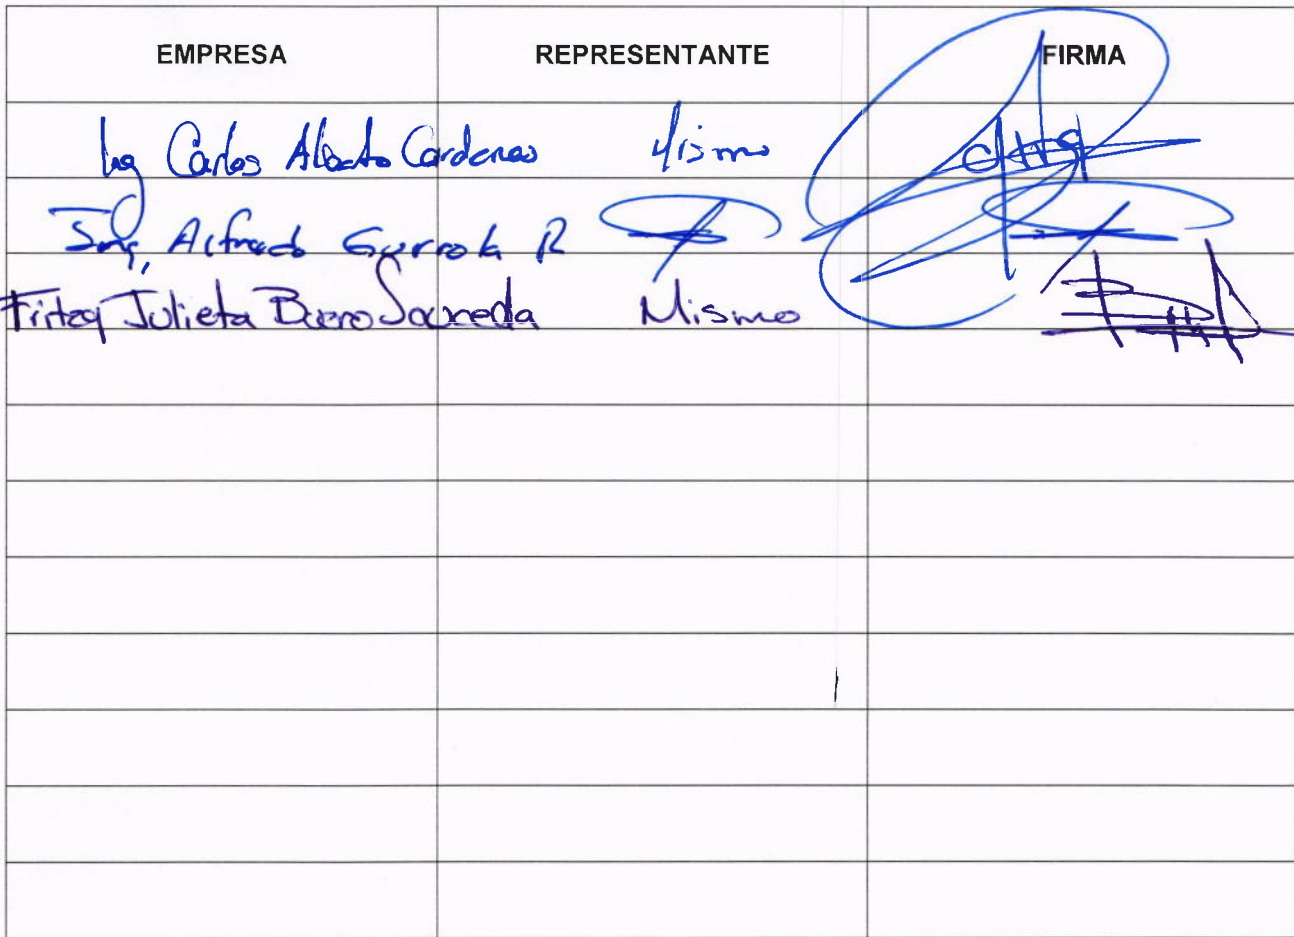 EMPRESA REPRESENTANTE FIRMA
Ing Carlos Alberto Cardenas Mismo
Ing, Alfredo Gurrola R
Julieta Mismo